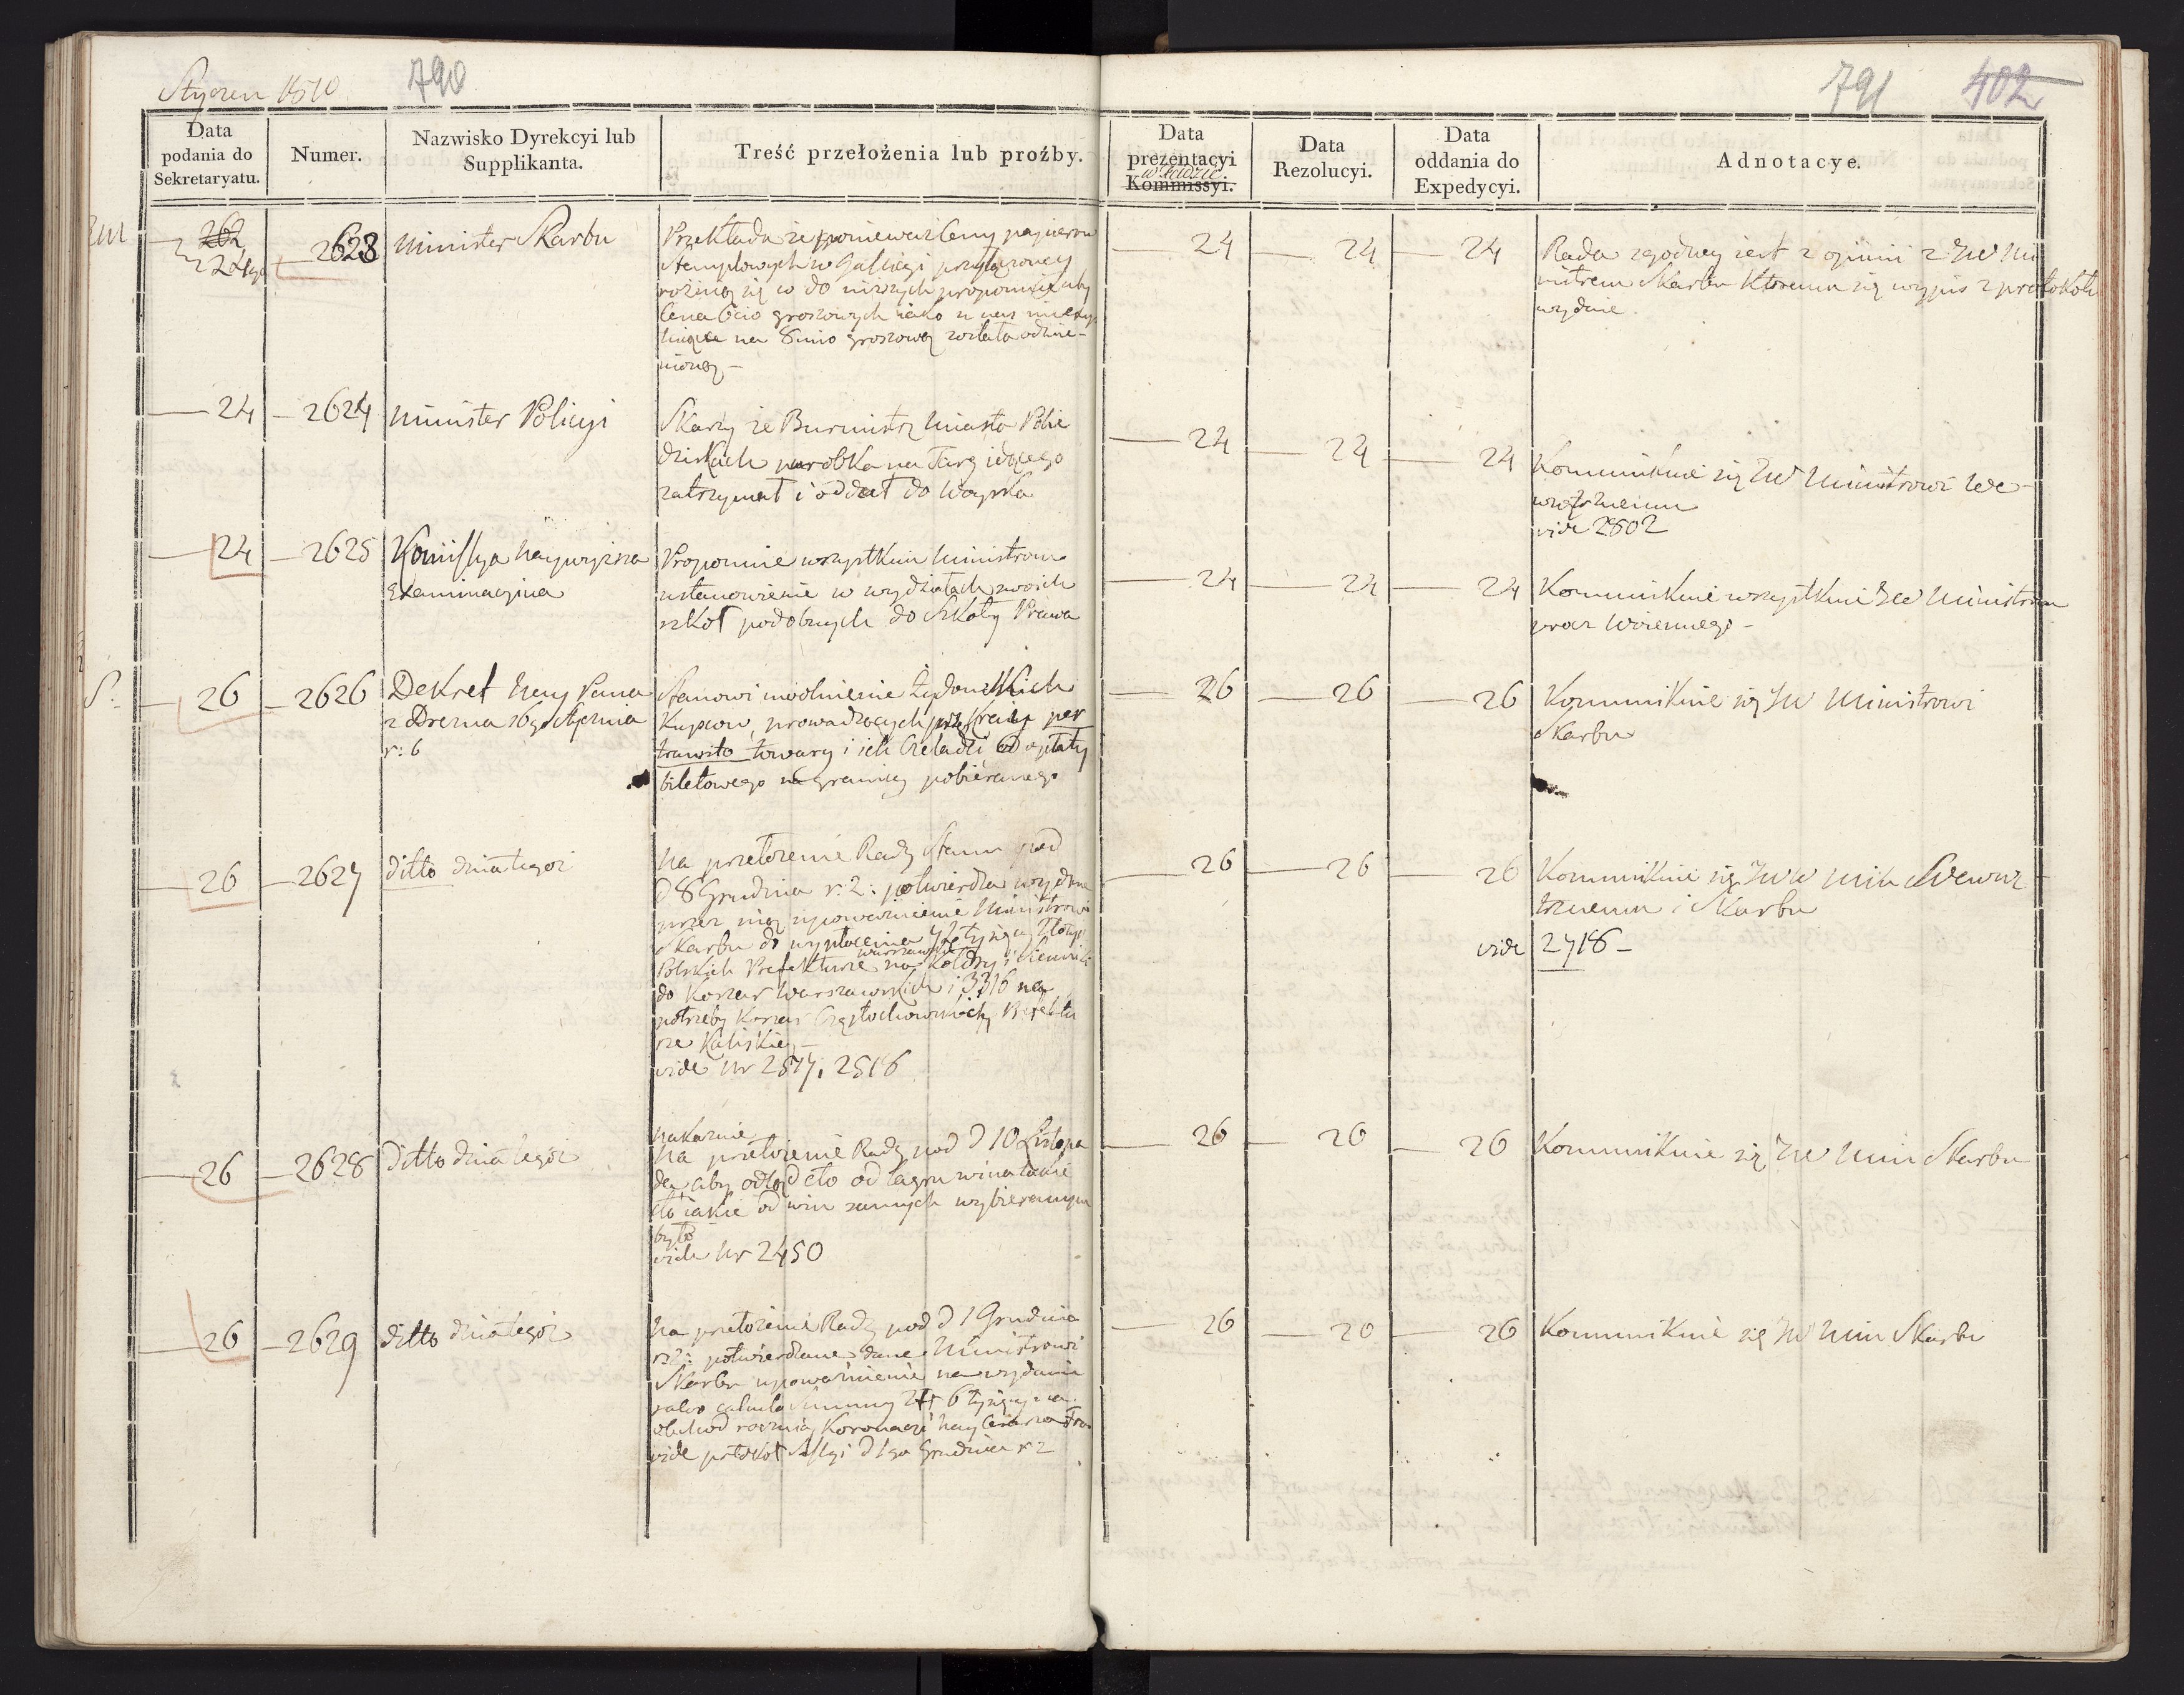 Styczen 1810
790
791
402
Data
podania do
Sekretaryatu.
Numer.
Nazwisko Dyrekcyi lub
Supplikanta.
Treść przełożenia lub proźby.
Data
prezentacyi
w Radzie
Kommissyi.
Data
Rezolucyi.
Data
oddania do
Expedycyi.
Adnotacye.
2623
Minister Skarbu
Przekłada że ponieważ Ceny papierow
Stemplowych w Gallicyi przyłączoney
rożnią się co do niższych proponuie aby
Cena 6cio groszowych iako u nas
na 8mio groszową została odmie-
nioną –
24
24
24
Rada zgodney iest z opinii z JW Mi
nistrem Skarbu Ktoremu się wypis z protokołu
wydaie.
24
2624
Minister Policyi
Skarży że Burmistrz Miasta Pobie
dziskach parobka na Targ idącego
zatrzymał i oddał do Woyska
24
24
24
Kommunikuie się JW Ministrowi We-
wnętrznemu
vide 2602
24
2625
Kommissya Naywyższa
Examinacyina
Proponuie wszystkim Ministrom
ustanowienie w wydziałach swoich
szkoł podobnych do Szkoły Prawa
24
24
24
Kommunikuie wszystkim JW Ministrom
procz Woiennego –
S:
26
2626
Dekret Nay Pana
z Drezna 16go Stycznia
r: 6
Stanowi uwolnienie Żydowskich
Kupcow, prowadzących przez Kraiy per
transito towary i ich Czeladzi od opłaty
biletowego na granicy pobieranego
26
26
26
Kommunikuie się JW Ministrowi
Skarbu
26
2627
ditto dnia tegoż
Na przełożenie Rady Stanu pod
d 8 Grudnia r: 2: potwierdza wydane
przez nią upoważnienie Ministrowi
Skarbu do wypłacenia
Polskich Prefekturze Warszaws: na Kołdry i Sienniki
do Koszar Warszawskich i 3316 na
potrzeby Koszar Częstochowskich Prefektu
rze Kaliskiey –
vide Nr 2577, 2516
26
26
26
Kommunikuie się JWW Min Wewnę
trznemu i Skarbu
vide 2718 –
26
2628
Ditto dnia tegoż
Nakazuie
Na przełożenie Rady pod d 10 Listopa
da aby odtąd cło od lagru wina takie
cło iakie od win samych wybieranym
było
vide Nr 2450
26
26
26
Kommunikuie się JW Min Skarbu
26
2629
ditto dnia tegoż
Na przełożenie Rady pod d 1 Grudnia
r: 2: potwierdzane dane Ministrowi
Skarbu upoważnienie na wydanie
salvo calculo Summy Zł 6 tysięcy na
obchod rocznicy Koronacyi Nay Cesarza
vide protokoł Sessyi d 1go Grudnia r 2
26
20
26
Kommunikuie się JW Min Skarbu